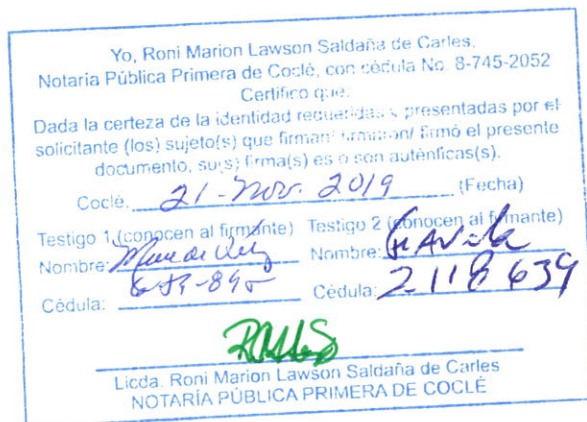 Yo, Roni Marion Lawson Saldaña de Carles,
Notaria Pública Primera de Coclé, con cédula No. 8-745-2052
Certifico que:
Dada la certeza de la identidad requeridas y presentadas por el
solicitante (los) sujeto(s) que firman/ firmaron/ firmó el presente
documento, su(s) firma(s) es o son auténficas(s).
Coclé. 21-Nov. 2019 (Fecha)
Testigo 1 (conocen al firmante) Testigo 2 (conocen al firmante)
Nombre: Nombre:
Cédula: Cédula: 2 118 639
Licda. Roni Marion Lawson Saldaña de Carles
NOTARÍA PÚBLICA PRIMERA DE COCLÉ